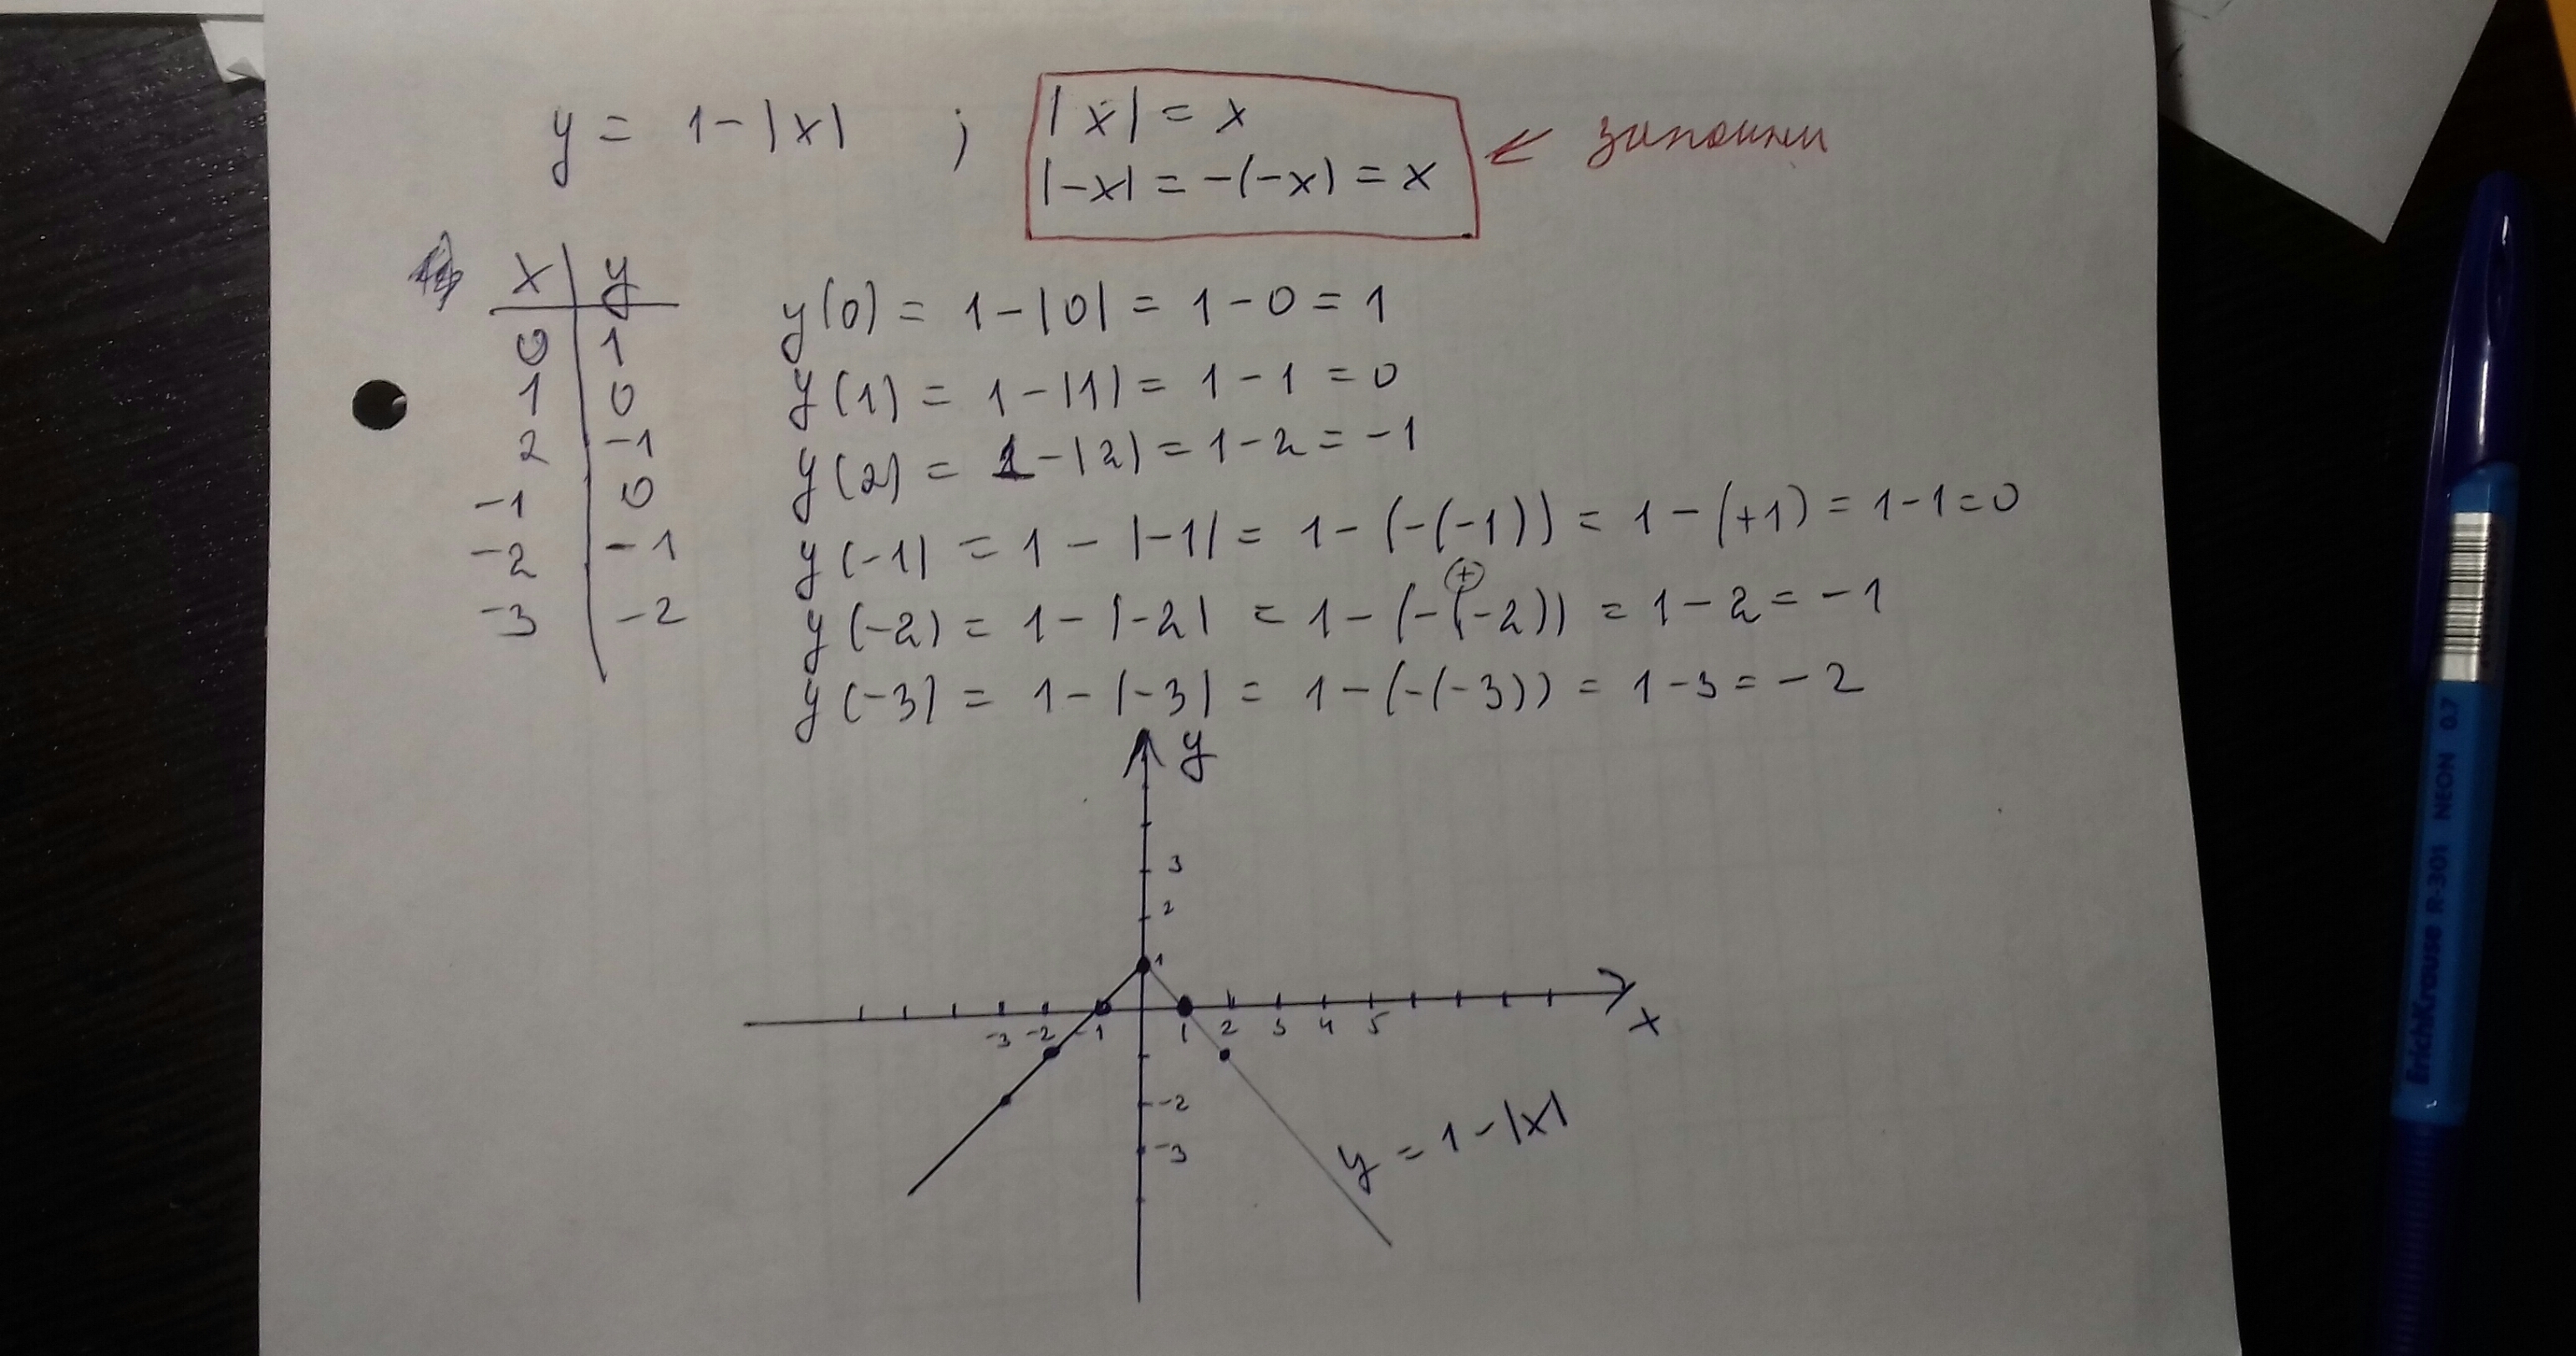 y = 1-|x| ;
|x| = x
|-x| = -(-x) = x
запомни
x y
0 1
1 0
2 -1
-1 0
-2 -1
-3 -2
y(0) = 1-|0| = 1-0 = 1
y(1) = 1-|1| = 1-1 = 0
y(2) = 1-|2| = 1-2 = -1
y(-1) = 1-|-1| = 1-(-(-1)) = 1-(+1) = 1-1=0
+
y(-2) = 1-|-2| = 1-(-(-2)) = 1-2 = -1
y(-3) = 1-|-3| = 1-(-(-3)) = 1-3 = -2
y
3
2
1
-3 -2 -1 1 2 3 4 5
x
-2
-3
y = 1-|x|
ErichKrause R-301 NEON 0.7